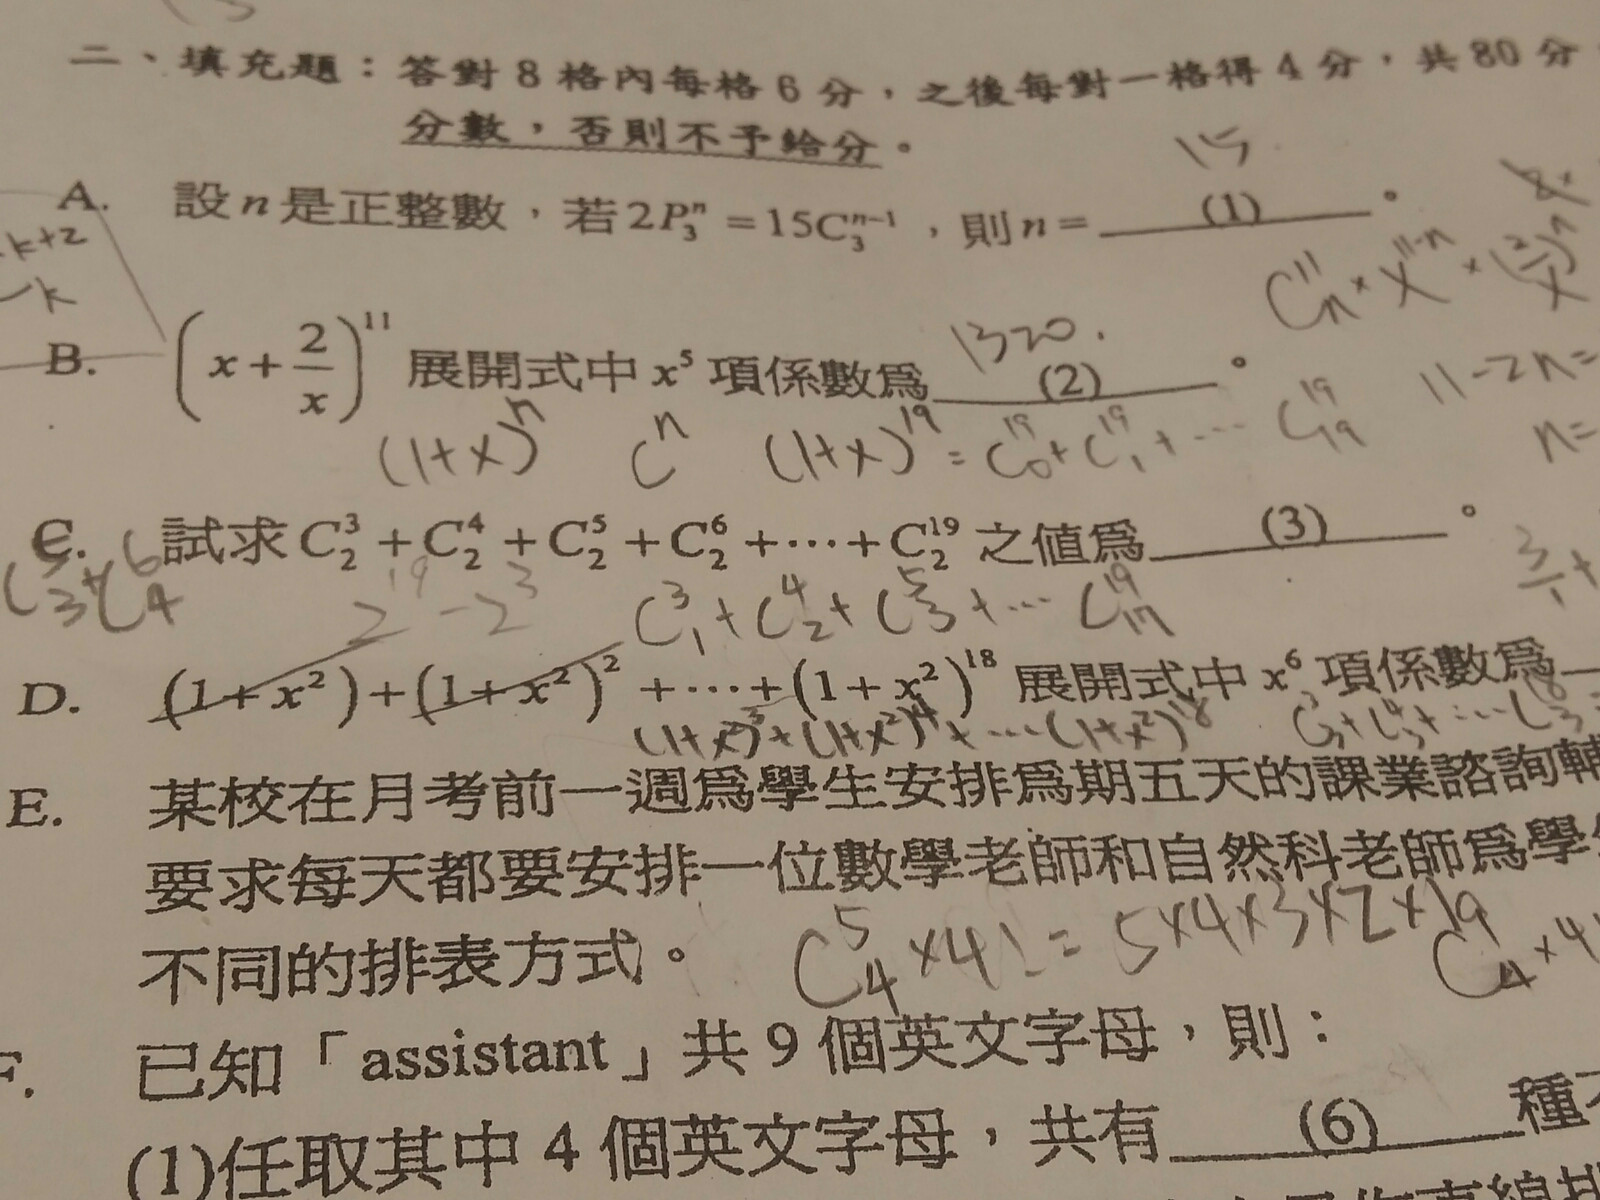 二、填充題：答對 8 格內每格 6 分，之後每對一格得 4 分，共 80 分
分數，否則不予給分。
15
A. 設 n 是正整數，若 2P₃ⁿ = 15C₃ⁿ⁻¹，則 n = (1)。
k+2
k
C¹¹ₙ × x¹¹⁻ⁿ × (2/x)ⁿ
1320.
B. (x + 2/x)¹¹ 展開式中 x⁵ 項係數為 (2)。
11-2n=
n=
(1+x)ⁿ Cⁿ (1+x)¹⁹ = C¹⁹₀ + C¹⁹₁ + ⋯ C¹⁹₁₉
C. 試求 C₂³ + C₂⁴ + C₂⁵ + C₂⁶ + ⋯ + C₂¹⁹ 之值為 (3)。
2¹⁹ - 2³ C³₁ + C⁴₂ + C⁵₃ + ⋯ C¹⁹₁₇
D. (1 + x²) + (1 + x²)² + ⋯ + (1 + x²)¹⁸ 展開式中 x⁶ 項係數為
(1+x²)³ + (1+x²)⁴ + ⋯ (1+x²)¹⁸ C³₃ + C⁴₃ + ⋯ C¹⁸₃
E. 某校在月考前一週為學生安排為期五天的課業諮詢輔
要求每天都要安排一位數學老師和自然科老師為學
不同的排表方式。
C⁵₄ × 4! = 5×4×3×2×19
F. 已知「assistant」共 9 個英文字母，則：
(1)任取其中 4 個英文字母，共有 (6) 種